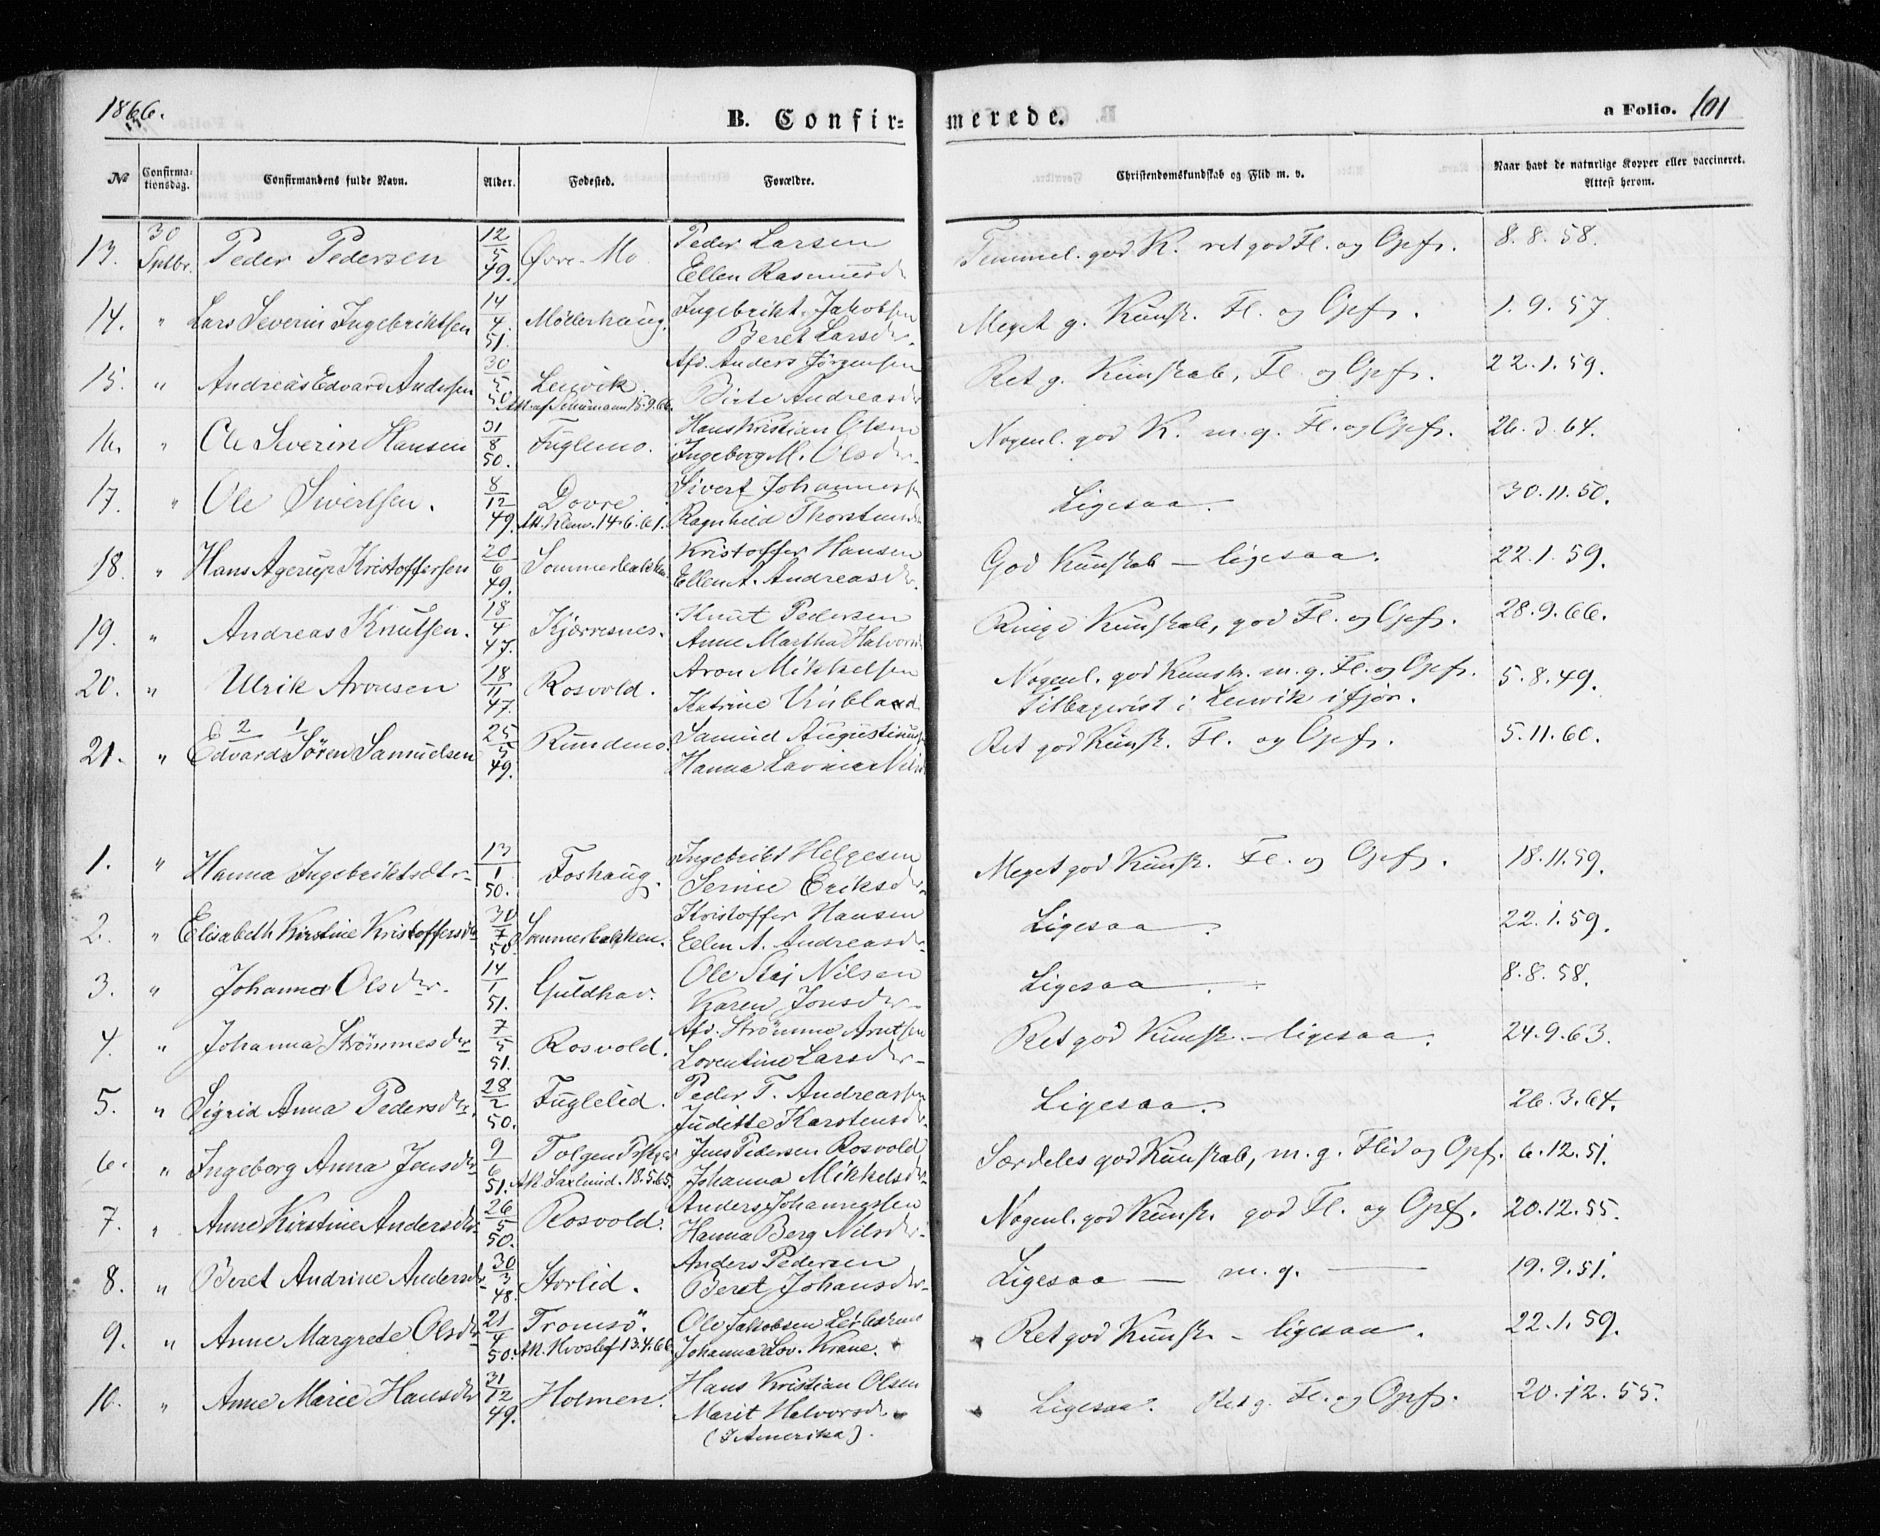 1866.
B. Confirmerede.
a Folio. 101
No
Confirmationsdag.
Confirmandens fulde Navn.
Alder.
Fødested.
Forældre.
Christendomskundskab og Flid m. v.
Naar havt de naturlige Kopper eller vaccineret. Attest herom.
13. 30 Sptbr. Peder Pedersen 12/5 49. Øvre-Mo Peder Larsen Ellen Rasmusdr Temmel. god K. ret god Fl. og Opf. 8.8.58.
14. " Lars Severin Ingebriktsen 14/4 51. Møllerhaug. Ingebrikt Jakobsen Beret Larsdr. Meget g. Kunsk. Fl. og Opf. 1.9.57.
15. " Andreas Edvard Andersen 30/5 50 Lenvik. Att. af Schumann 15.9.66. Afd. Anders Jørgensen Birte Andreasdr Ret g. Kunskab, Fl. og Opf. 22.1.59.
16. " Ole Severin Hansen 31/8 50. Fuglemo. Hans Kristian Olsen Ingeborg M. Olsdr. Nogenl. god K. m. g. Fl. og Opf. 26.3.64.
17. " Ole Sivertsen. 8/12 49. Dovre Att. Klem. 14.6.61. Sivert Johannessen Ragnhild Thorstensdr Ligesaa. 30.11.50.
18. " Hans Agerup Kristoffersen 20/6 49. Sommerbakken Kristoffer Hansen Ellen A. Andreasdr. God Kunskab - ligesaa. 22.1.59.
19. " Andreas Knutsen. 18/4 47. Kjerresnes. Knut Pedersen Anne Martha Halvorsdr Ringe Kunskab, god Fl. og Opf. 28.9.66.
20. " Ulrik Aronsen 18/11 47. Rosvold. Aron Mikkelsen Katrine Kribland Nogenl. god Kunsk. m. g. Fl. og Opf. Tilbagevist i Lenvik ifjor. 5.8.49.
21. " 2 1 Edvard Søren Samuelsen 25/5 49. Rundmo. Samuel Augustinussen Hanna Lavine Nilsdr Ret god Kunsk. Fl. og Opf. 5.11.60.
1. " Hanna Ingebriktsdtr 13/1 50. Foshaug. Ingebrikt Helgesen Serine Eriksdr. Meget god Kunsk. Fl. og Opf. 18.11.59.
2. " Elisabeth Kirstine Kristoffersdr 30/7 50 Sommerbakken. Kristoffer Hansen Ellen A. Andreasdr. Ligesaa. 22.1.59.
3. " Johanna Olsdr. 14/1 51. Guldhav. Ole Stej Nilsen Karen Jonsdr. Ligesaa. 8.8.58.
4. " Johanna Strømmesdr 7/5 51. Rosvold. Afd. Strømme Arntsen Lorentine Larsdr. Ret god Kunsk. - ligesaa. 24.9.63.
5. " Sigrid Anna Pedersdr. 28/2 50. Fuglelid. Peder T. Andreassen Juditte Karstensdr Ligesaa. 26.3.64.
6. " Ingeborg Anna Jensdr 9/6 51. Tolgen Prstgjd Att. Saxlund. 18.5.65. Jens Pedersen Rosvold Johanna Mikkelsdr. Særdeles god Kunskab, m. g. Flid og Opf. 6.12.51.
7. " Anne Kirstine Andersdr 26/5 50. Rosvold. Anders Johannessen Hanna Berg Nilsdr. Nogenl. god Kunsk. god Fl. og Opf. 20.12.55.
8. " Beret Andrine Andersdr 30/3 48. Storlid. Anders Pedersen Beret Johansdr. Ligesaa - m. g. - 19.9.51.
9. " Anne Margrete Olsdr 21/4 50. Tromsø. Att. Hvoslef 13.4.66. Ole Jakobsen Johanna Lov. Krane. Ret god Kunsk. - ligesaa. 22.1.59.
10. " Anne Marie Hansdr 31/12 49. Holmen. Hans Kristian Olsen Marit Halvorsdr (I Amerika). Ligesaa. Ret g. Fl. og Opf. 20.12.55.